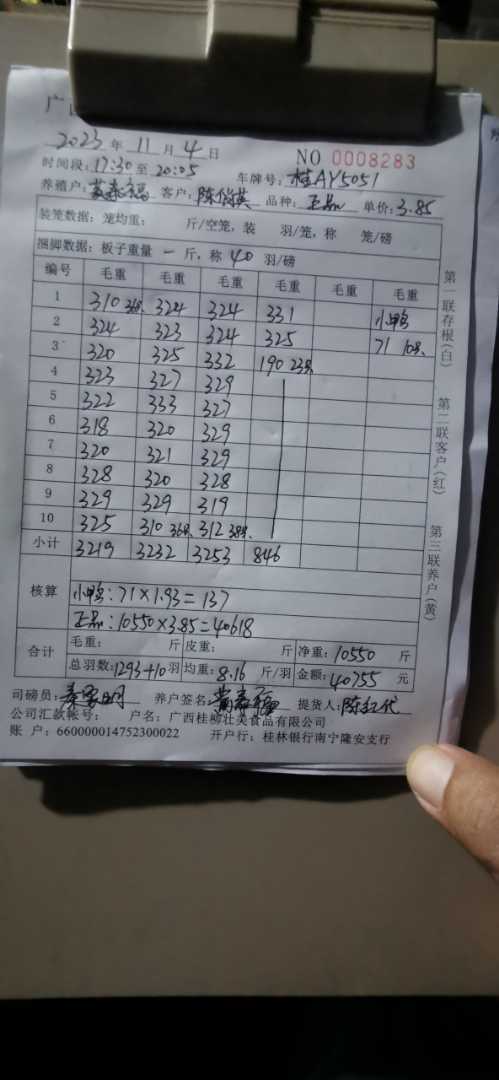 广
2023年11月4日
NO 0008283
时间段:17:30至20:05 车牌号:桂AY5051
养殖户: 客户:陈俊英 品种:正品 单价:3.85
装笼数据:笼均重: 斤/空笼,装 羽/笼,称 笼/磅
捆脚数据:板子重量 一 斤,称 40 羽/磅
编号 毛重 毛重 毛重 毛重 毛重 毛重
1 310 324 324 331 小鸭
2 324 323 324 325 71 10只
3 320 325 332 190 23只
4 323 327 329
5 322 333 327
6 318 320 329
7 320 321 329
8 328 320 328
9 329 329 319
10 325 310 36只 312 38只
小计 3219 3232 3253 846
核算 小鸭:71×1.93=137
正品:10550×3.85=40618
合计 毛重: 斤 皮重: 斤 净重:10550 斤
总羽数:1293+10羽 均重:8.16 斤/羽 金额:40755 元
司磅员: 养户签名: 提货人:
公司汇款帐号: 户名:广西桂柳壮美食品有限公司
账户:660000014752300022 开户行:桂林银行南宁隆安支行
第一联存根(白)
第二联客户(红)
第三联养户(黄)